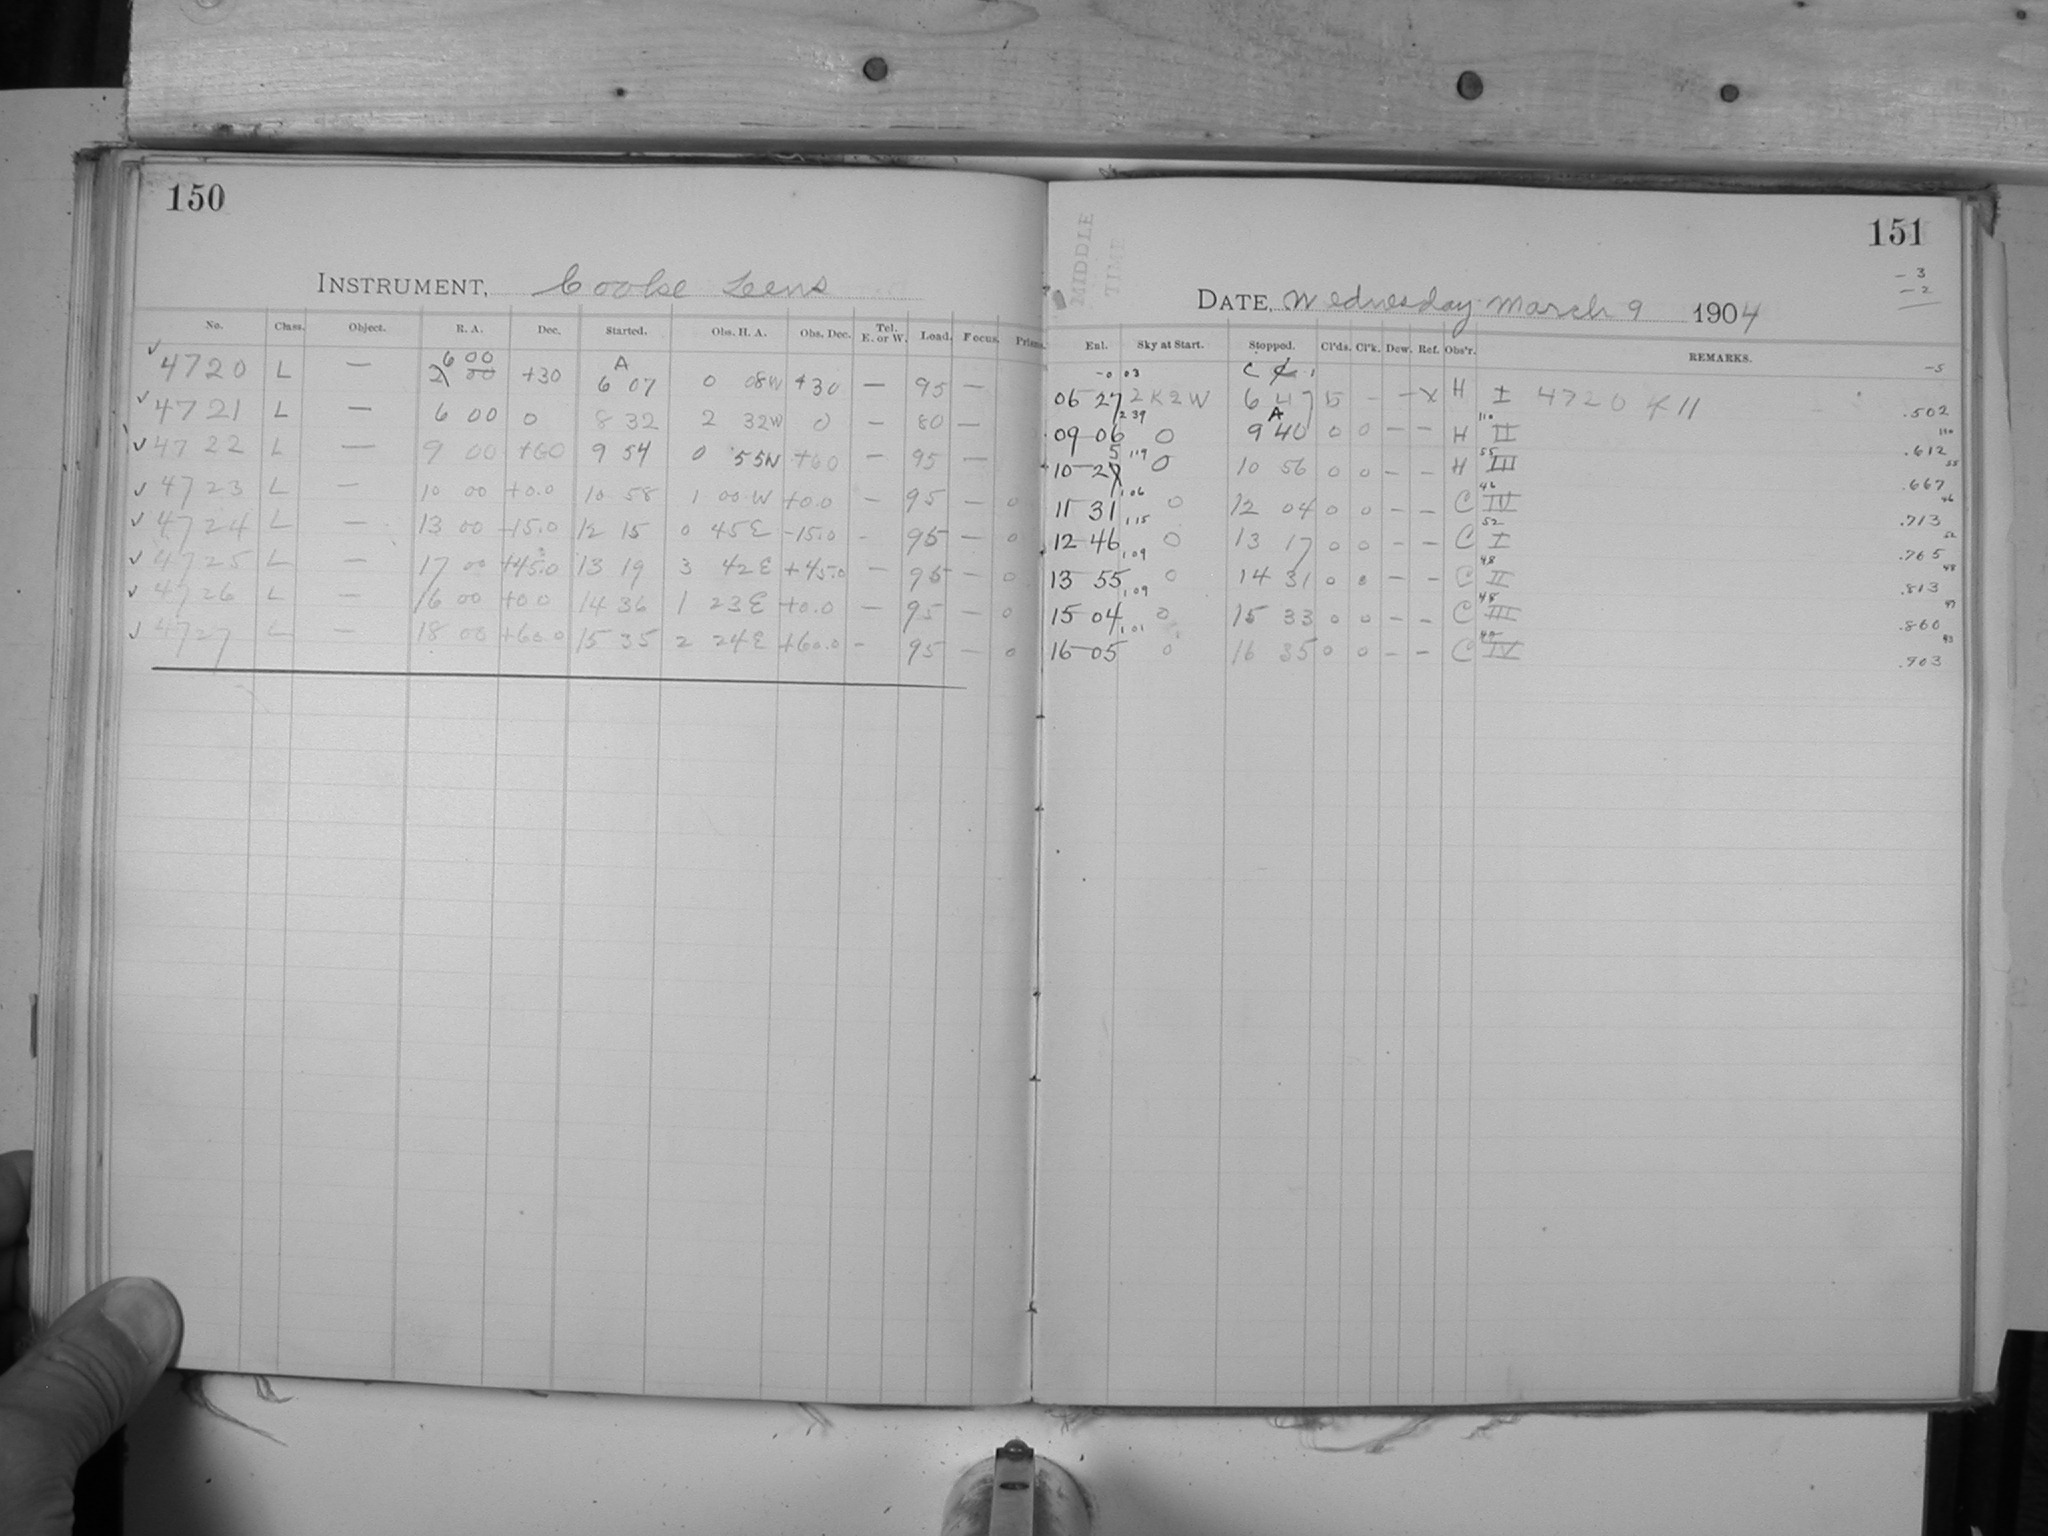 150
INSTRUMENT, Cooke Lens
No. Class. Object. R. A. Dec. Started. Obs. H. A. Obs. Dec. Tel. E. or W. Load. Focus. Prisms.
6 00 A
4720 L — 2 00 +30 6 07 0 08W +30 — 95 —
4721 L — 6 00 0 8 32 2 32W 0 — 80 —
4722 L — 9 00 +60 9 54 0 55W +60 — 95 —
4723 L — 10 00 +0.0 10 58 1 00.W +0.0 — 95 — 0
4724 L — 13 00 -15.0 12 15 0 45E -15.0 - 95 — 0
4725 L — 17 00 +45.0 13 19 3 42E +45.0 — 95 — 0
4726 L — 16 00 +0.0 14 36 1 23E +0.0 — 95 — 0
4727 L — 18 00 +60.0 15 35 2 24E +60.0 - 95 — 0
MIDDLE
TIME
151
- 3
- 2
DATE, Wednesday March 9 1904
Enl. Sky at Start. Stopped. Cl'ds. Cl'k. Dew. Ref. Obs'r. REMARKS.
-0 03 C -5
06 27 2 K 2 W 6 47 5 - - x H I 4720 K 11 .502
2 39 A 110 110
09 06 0 9 40 0 0 - - H II .612
5 1 19 55 55
10 27 0 10 56 0 0 - - H III .667
1 06 46 46
11 31 0 12 04 0 0 - - C IV .713
1 15 52 52
12 46 0 13 17 0 0 - - C I .765
1 09 48 48
13 55 0 14 31 0 0 - - C II .813
1 09 48 47
15 04 0 15 33 0 0 - - C III .860
1 01 43
16 05 0 16 35 0 0 - - C IV .903